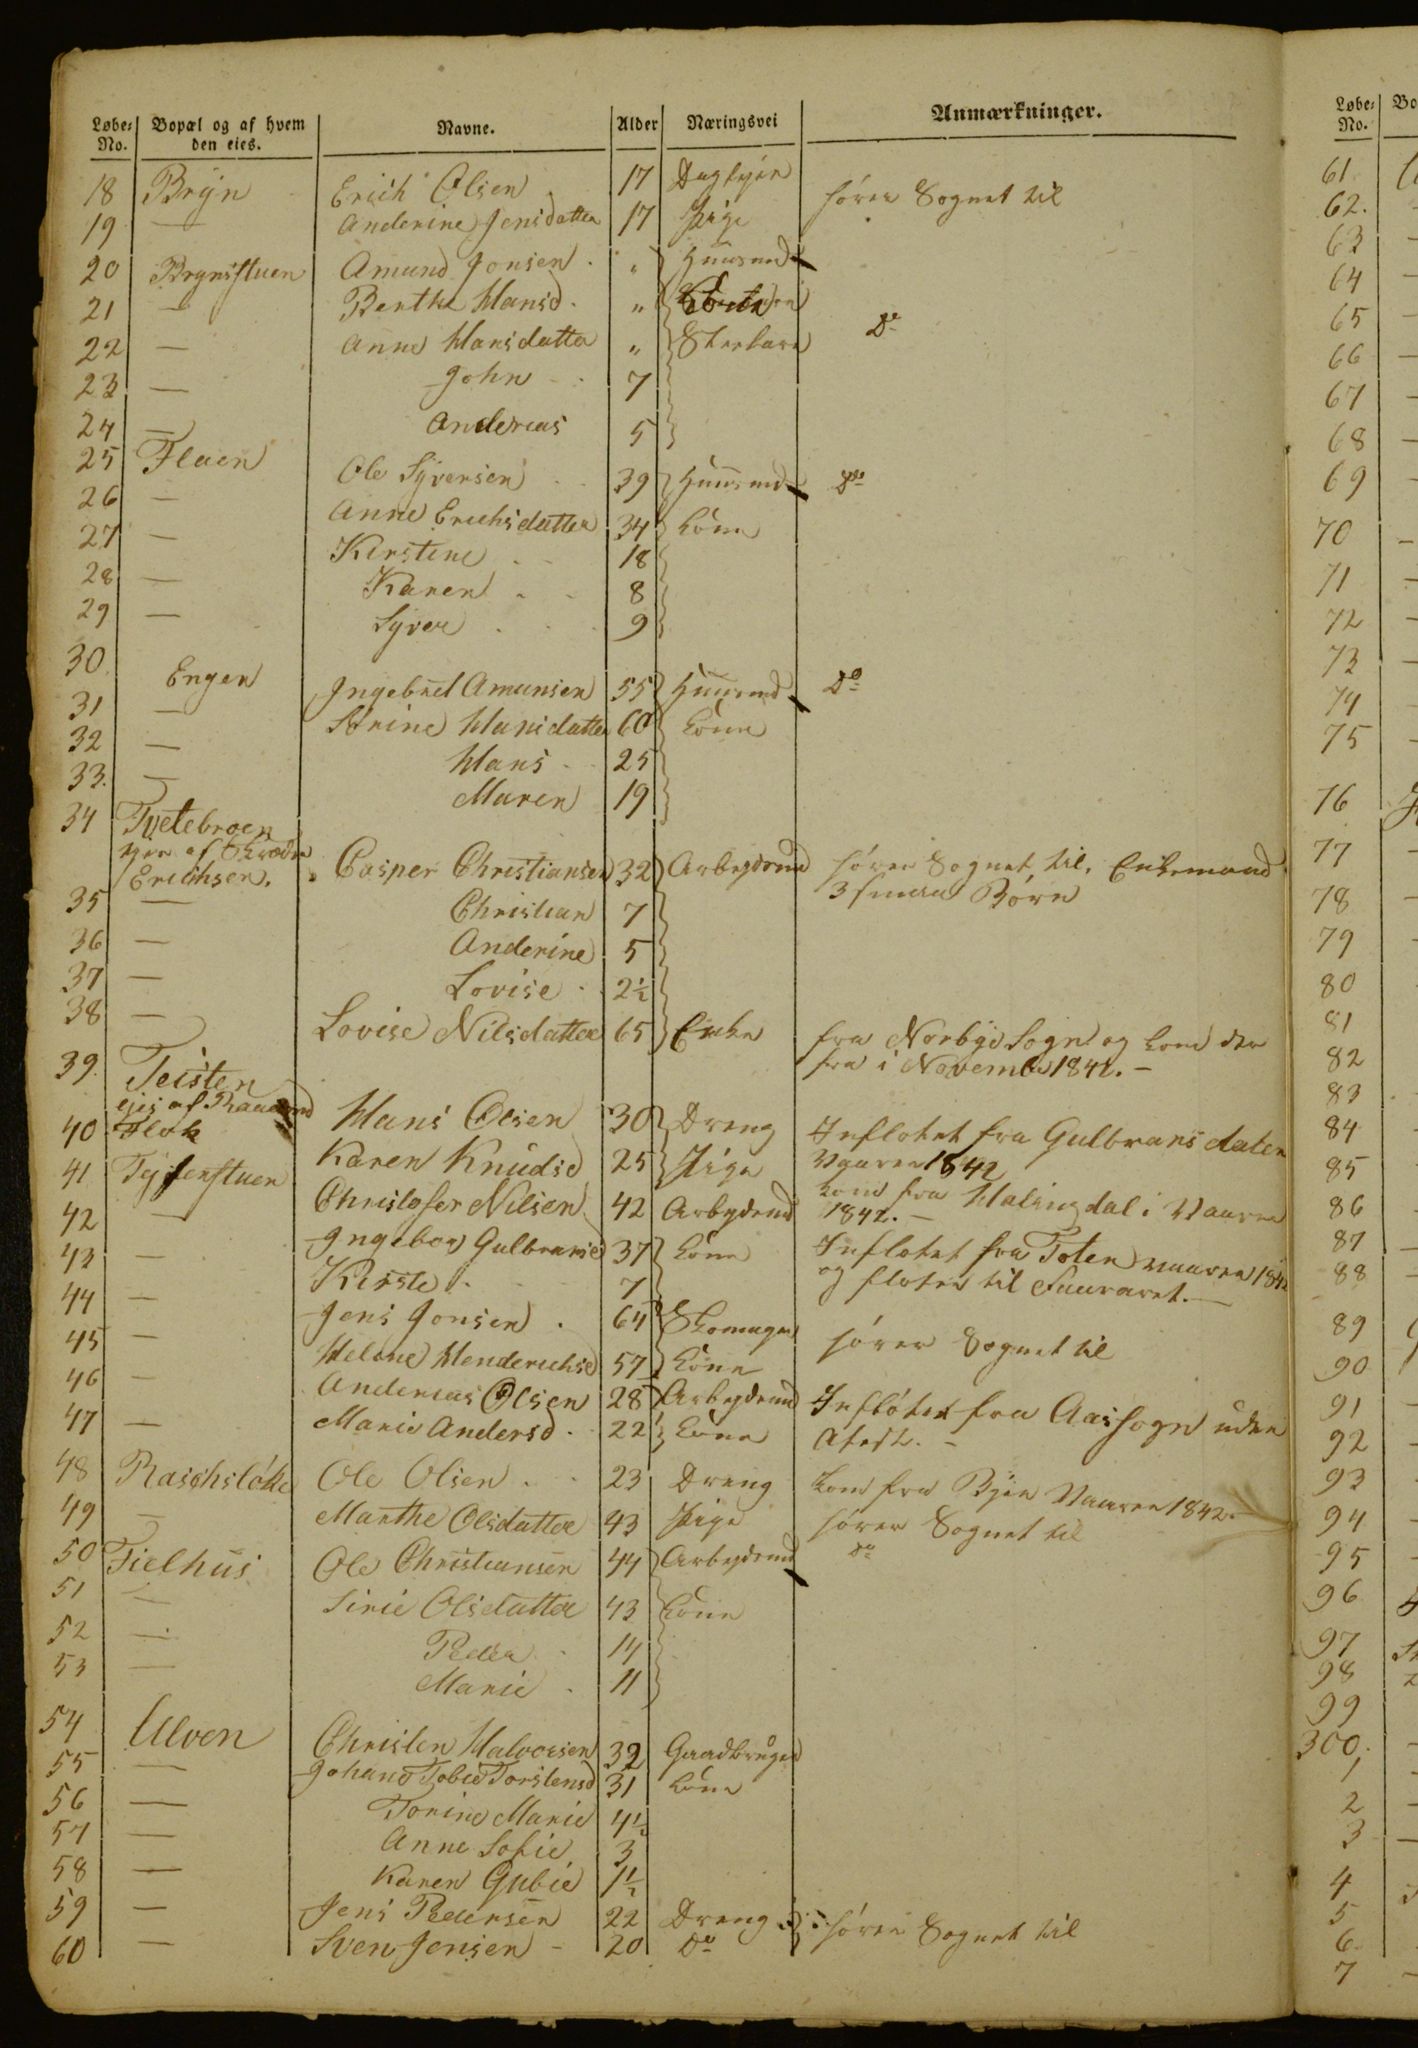 Løbe-No. Bopæl og af hvem den eies. Navne. Alder Næringsvei Anmærkninger.
18 Bryn Erich Olsen 17 hører Sognet til
19 — Anderine Jensdatter 17 Pige
20 Brynistuen Amund Jonsen " Huusmd
21 — Berthe Hansd. " Kone
22 — Anne Hansdatter " Do
23 — John 7
24 — Anderias 5
25 Flaen Ole Syversen 39 Huusmd Do
26 — Anne Erichsdatter 34 Kone
27 — Kirstine 18
28 — Karen 8
29 — Syver 9
30 Engen Ingebret Amunsen 55 Huusmd Do
31 — Strine Hansdatter 60 Kone
32 — Hans 25
33. — Maren 19
34 Tvetebroen
Erichsen. Casper Christiansen 32 Arbeydsmd hører Sognet til. Enkemand
3 smaa Børn
35 — Christian 7
36 — Anderine 5
37 — Lovise 2½
38 — Lovise Nilsdatter 65 Enke fra Norbye Sogn og kom der
fra i November 1842. —
39. Teisten
ejes af
40 Flok Hans Olsen 30 Dreng Inflotet fra Gulbransdalen
Vaaren 1842
41 Karen Knudsd 25 Pige kom fra Halingdal i Vaaren
1842. —
42 — Christofer Nilsen 42 Arbeydsmd Inflotet fra Toten vaaren 1842
43 — Ingebor Gulbransd 37 Kone og floter til
44 — Kirste 7
45 — Jens Jonsen 64 Skomager hører Sognet til
46 — Helene Henderichsd 57 Kone
47 — Anderias Olsen 28 Arbeydsmd Inflötet fra Aas Sogn uden
Marie Andersd. 22 Kone Atest. —
48 Raschsløkke Ole Olsen 23 Dreng kom fra Byen Vaaren 1842. —
49 — Marthe Olsdatter 43 Pige hører Sognet til
50 Fielhus Ole Christiansen 44 Arbeydsmd Do
51 — Sirie Olsdatter 43 Kone
52 — Peder 14
53 — Marie 11
54 Ulven Christen Halvorsen 32 Gaardbruger
55 — Johane Tobie Torstensd 31 Kone
56 — Torine Marie 4½
57 — Anne Sofie 3
58 — Karen Gubie 1½
59 — Jens Pedersen 22 Dreng hører Sognet til
60 — Sven Jensen 20 Do
Løbe-No. Bo
61
62.
63
64
65
66
67
68
69
70
71
72
73
74
75
76
77
78
79
80
81
82
83
84
85
86
87
88
89
90
91
92
93
94
95
96
97
98
99
300.
1
2
3
4
5
6
7